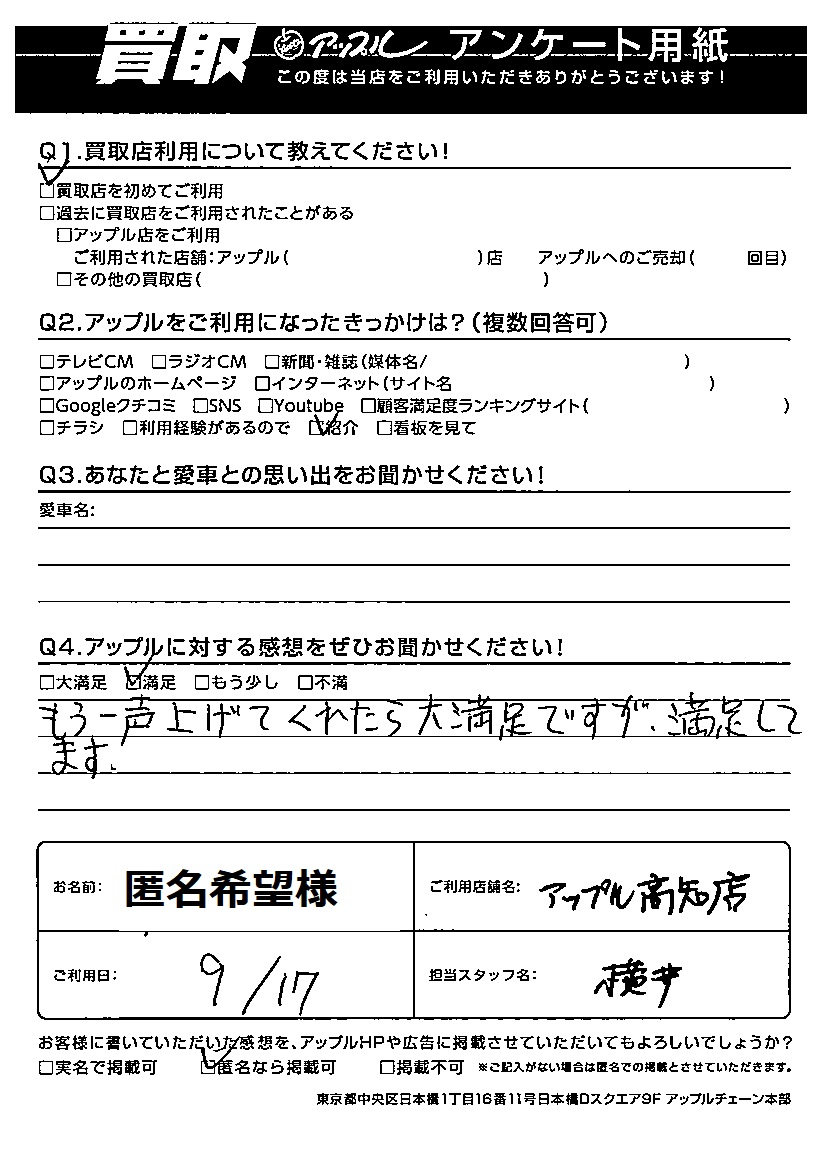 買取 アップル アンケート用紙
この度は当店をご利用いただきありがとうございます!
Q1.買取店利用について教えてください!
□買取店を初めてご利用
□過去に買取店をご利用されたことがある
□アップル店をご利用
ご利用された店舗:アップル( )店 アップルへのご売却( 回目)
□その他の買取店( )
Q2.アップルをご利用になったきっかけは?(複数回答可)
□テレビCM □ラジオCM □新聞・雑誌(媒体名/ )
□アップルのホームページ □インターネット(サイト名 )
□Googleクチコミ □SNS □Youtube □顧客満足度ランキングサイト( )
□チラシ □利用経験があるので ☑紹介 □看板を見て
Q3.あなたと愛車との思い出をお聞かせください!
愛車名:
Q4.アップルに対する感想をぜひお聞かせください!
□大満足 ☑満足 □もう少し □不満
もう一声上げてくれたら大満足ですが、満足して
ます。
お名前: 匿名希望様 ご利用店舗名: アップル高知店
ご利用日: 9/17 担当スタッフ名: 横井
お客様に書いていただいた感想を、アップルHPや広告に掲載させていただいてもよろしいでしょうか?
□実名で掲載可 ☑匿名なら掲載可 □掲載不可 ※ご記入がない場合は匿名での掲載とさせていただきます。
東京都中央区日本橋1丁目16番11号日本橋Dスクエア9F アップルチェーン本部